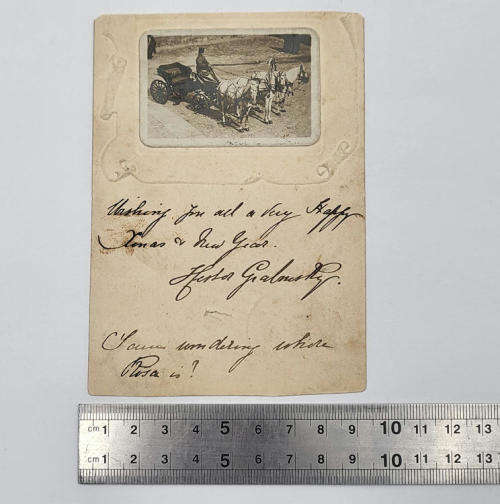 Wishing you all a Very Happy
Xmas & New Year.
Hector
wondering where
Rosa is?
cm 1 2 3 4 5 6 7 8 9 10 11 12 13
cm 1 2 3 4 5 6 7 8 9 10 11 12 13